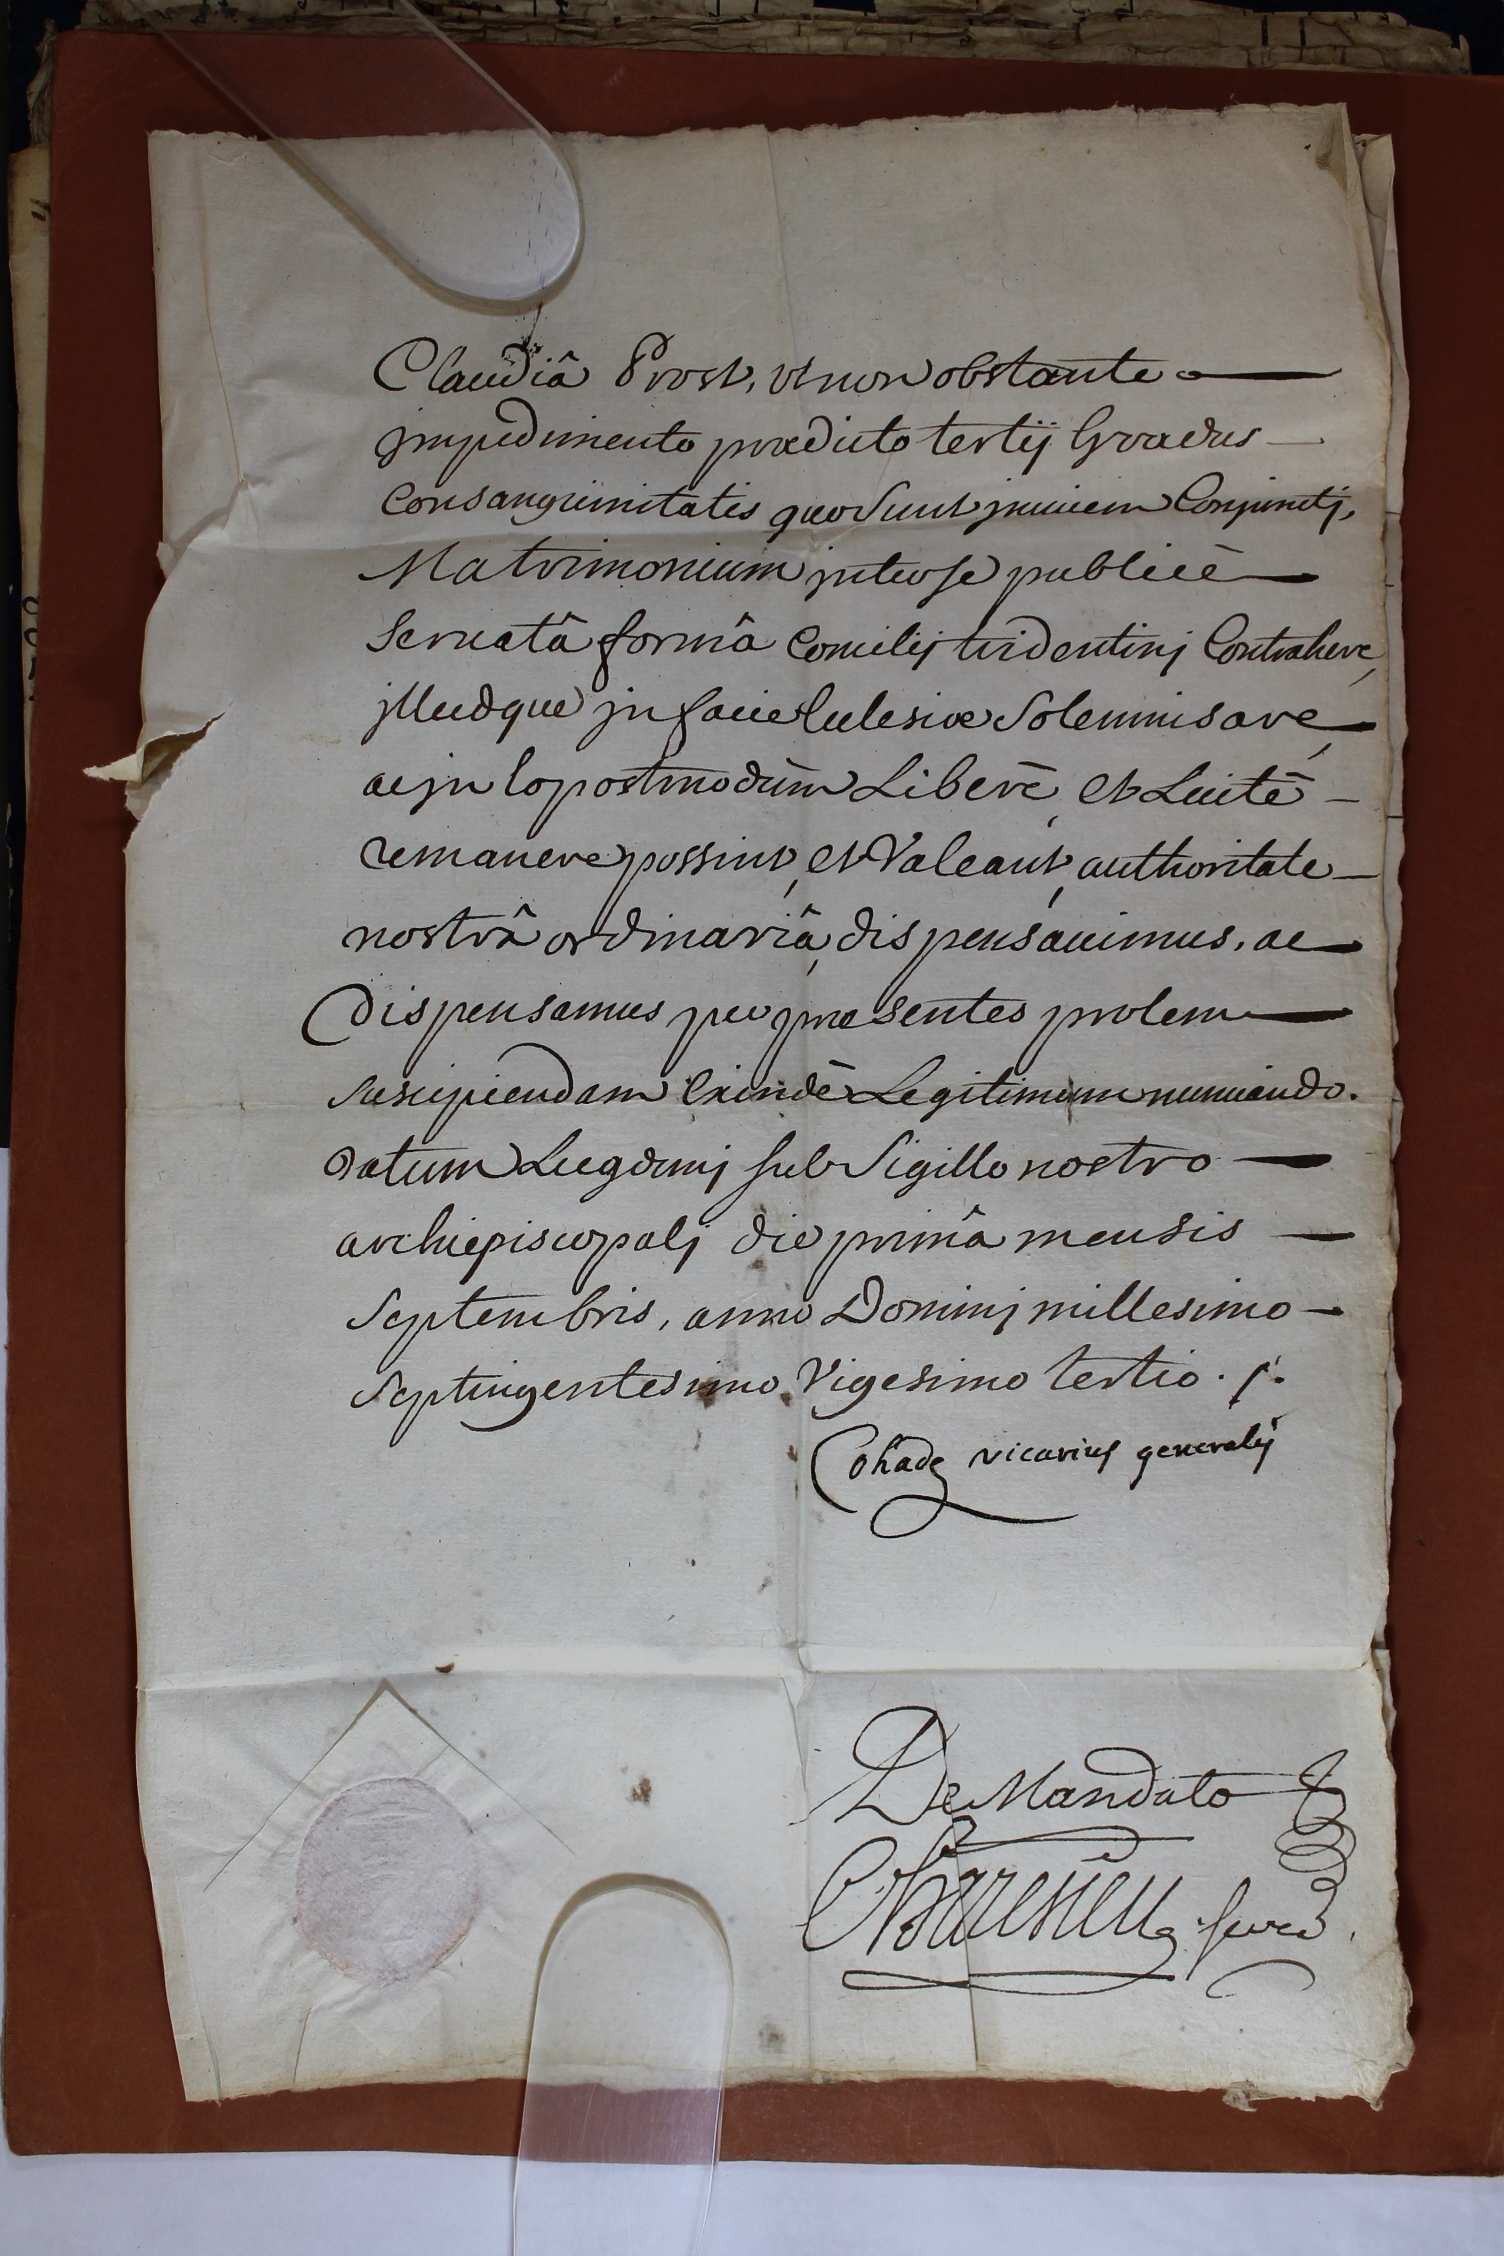 Claudiâ Prost, vt non obstante
jmpedimento prædicto tertij Gradus
Consanguinitatis quo Sunt jnuicem Conjunctj,
Matrimonium jnter se publicè
Seruatâ formâ Concilij tridentinj Contrahere,
jlludque jn facie Ecclesiæ Solemnisare,
ac jn Eo postmodùm Liberè, et Licitè
remanere possint, et Valeant, authoritate
nostrâ ordinariâ, dispensauimus, ac
Dispensamus per præsentes prolem
suscipiendam Exindè Legitimam nunciando.
Datum Lugdunj sub Sigillo nostro
archiepiscopalj die primâ mensis
Septembris, anno Dominj millesimo
Septingentesimo Vigesimo tertio ./.
Cohade vicarius generalis
De Mandato